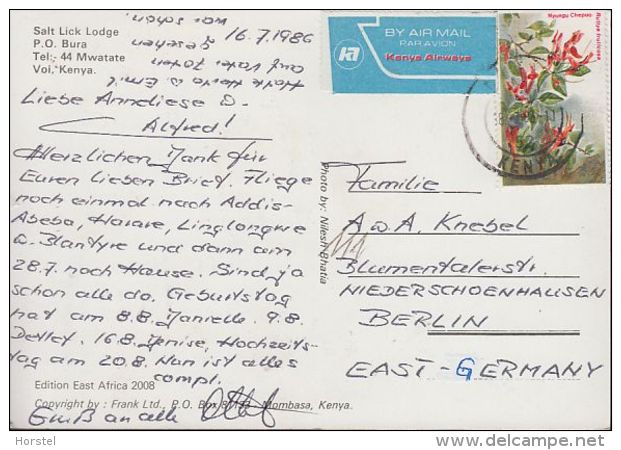 Salt Lick Lodge
P.O. Bura
Tel:- 44 Mwatate
Voi, Kenya.
war schön.
gesehen
auf vielen Fotos
Karte Marte &
16.7.1986
Liebe Anneliese &
Alfred!
Herzlichen Dank für
Euren lieben Brief. Fliege
noch einmal nach Addis-
Abeba, Harare, Linglongwe
& Blantyre und dann am
28.7. nach Hause. Sind ja
schon alle da. Geburtstag
hat am 8.8. Danielle. 9.8.
Detlef. 16.8. Denise, Hochzeits-
tag am 20.8. Nun ist alles
compl.
Gruß an alle
Edition East Africa 2008
Copyright by : Frank Ltd., P.O. Box 81733 - Mombasa, Kenya.
Photo by: Nilesh Bhatia
BY AIR MAIL
PAR AVION
Kenya Airways
Ruttya fruticosa
KENYA
Familie
A. & A. Knebel
111
Blumentalerstr.
NIEDERSCHOENHAUSEN
BERLIN
EAST-GERMANY
Horstel
www.delcampe.net